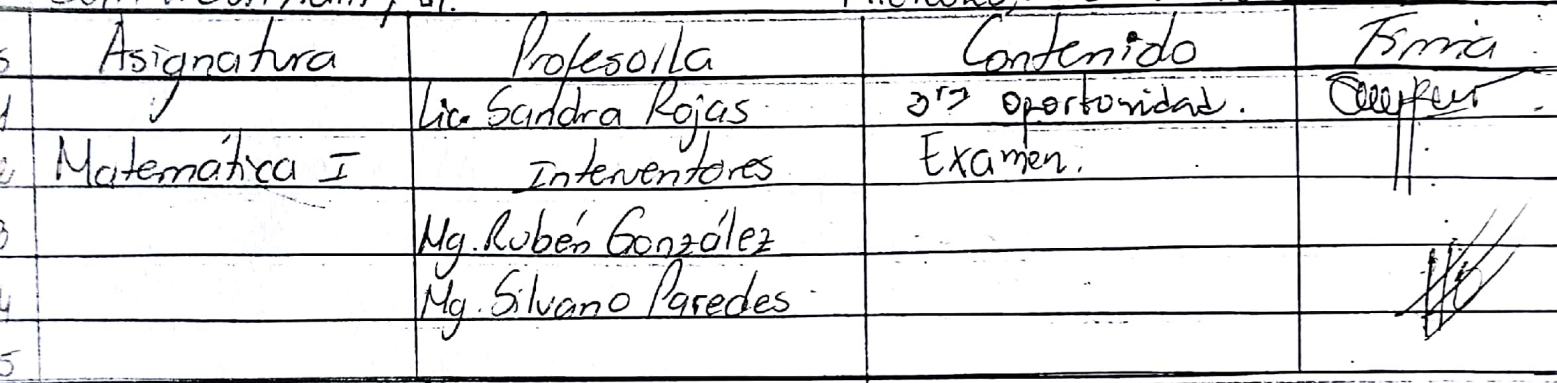 Asignatura Profesor/la Contenido Firma
1 Lic. Sandra Rojas 3ra oportunidad.
2 Matemática I Interventores Examen.
3 Mg. Rubén González
4 Mg. Silvano Paredes
5